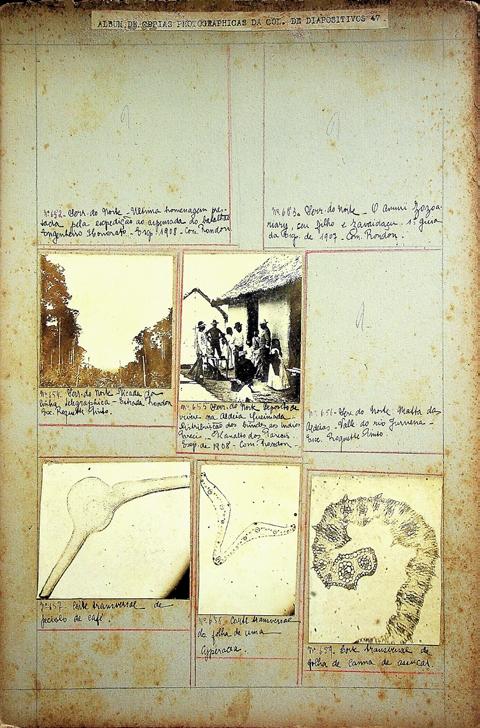 ALBUM DE COPIAS PHOTOGRAPHICAS DA COL. DE DIAPOSITIVOS 47.
Nº 652 - Corr. do Norte - Ultima homenagem pres-
tada pela expedição ao
Engenheiro Honorato. - Exp. 1908 - Com. Rondon
Nº 653. Corr. do Norte - O Amuri Zozoa-
seu filho e 1º guia
da Exp. de 1907. Com. Rondon.
Nº 654. Corr. do Norte Picada da
linha telegraphica - Estrada Rondon
Exc. Roquette Pinto.
Nº 655 Corr. do Norte Deposito de
viveres na Aldeia Queimada.
Distribuição dos brindes aos indios
Parecis. - Planalto dos Parecis.
Exp. de 1908 - Com. Rondon.
Nº 656 - Corr. do Norte Matta das
Aldeias. Valle do rio Juruena -
Exc. Roquette Pinto.
Nº 657. Corte transversal de
peciolo de café.
Nº 658. Corte transversal
da folha de uma
Cyperacea.
Nº 659. Corte transversal de
folha de canna de assucar.